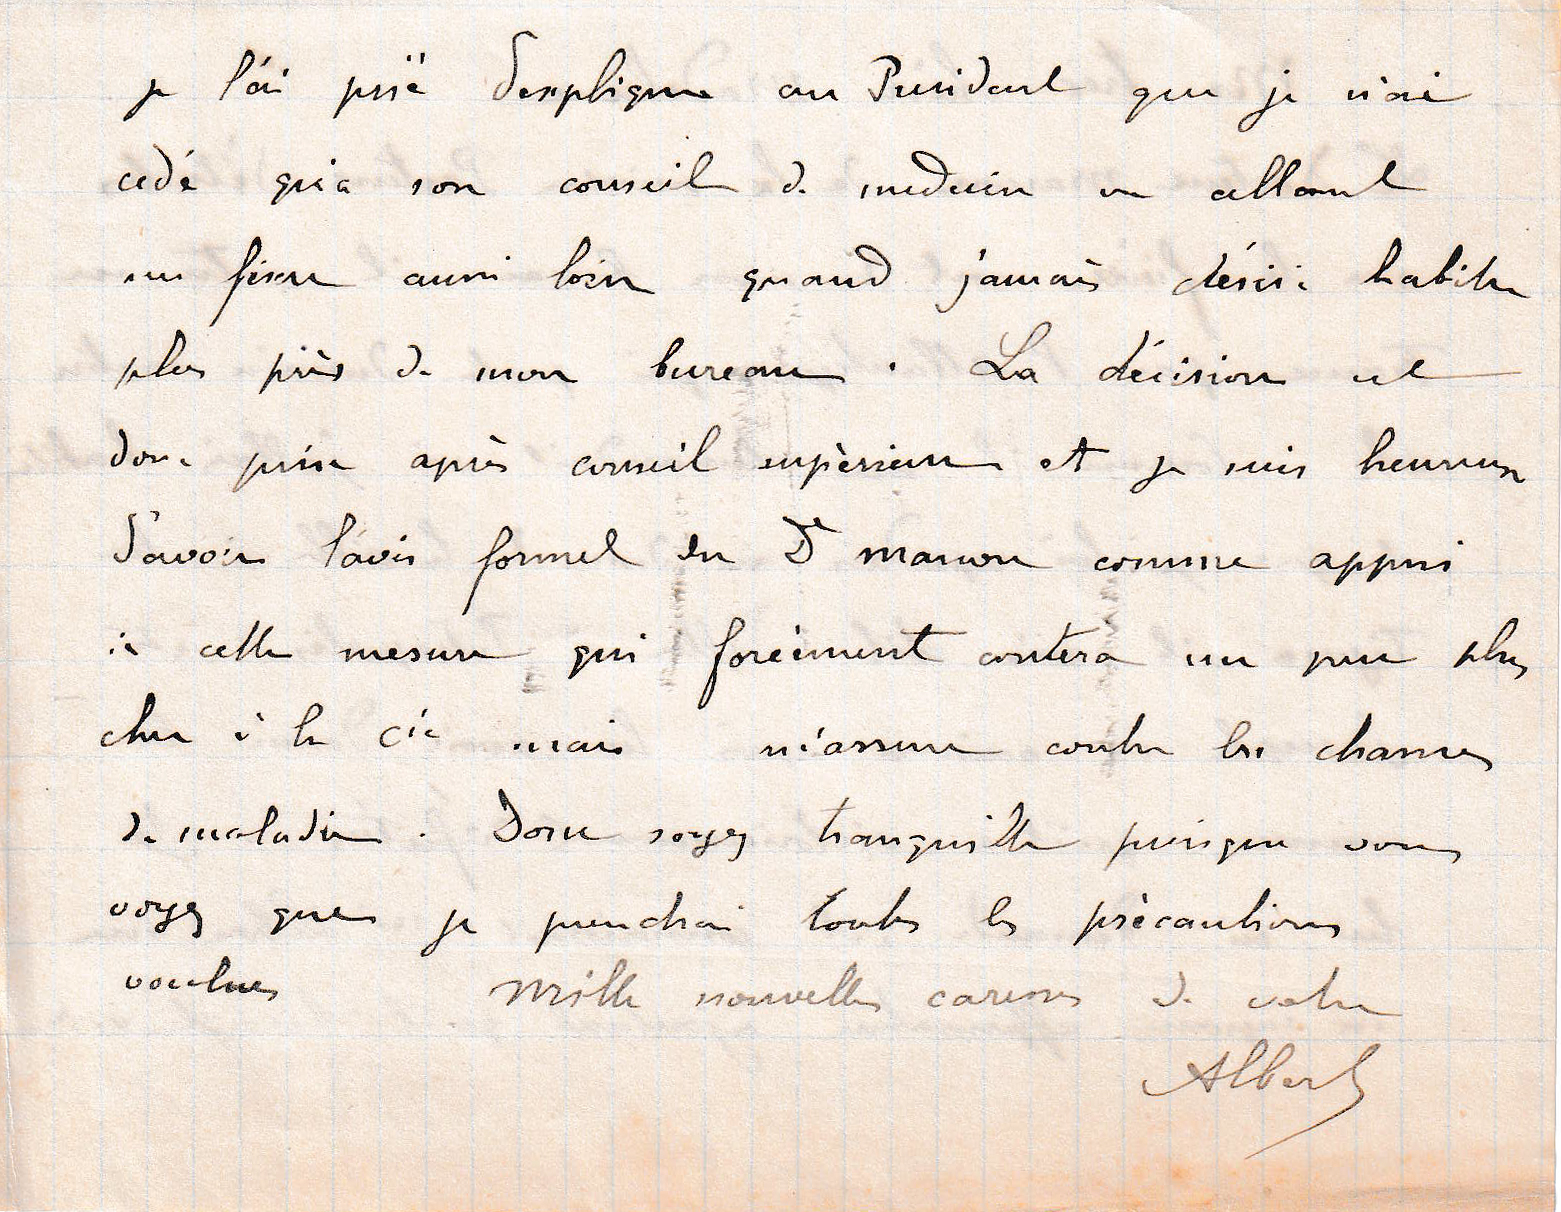 je l'ai prié d'expliquer au President que je n'ai
cedé qu'a son conseil de medecin en allant
me fixer aussi loin quand j'aurais désiré habiter
plus près de mon bureau. La décision est
donc prise après conseil supèrieur et je suis heureux
d'avoir l'avis formel du Dr comme appui
à cette mesure qui forcément coutera un peu plus
cher à la Cie mais m'assure contre les chances
de maladie. Donc soyez tranquille puisque vous
voyez que je prendrai toutes les précautions
voulues Mille nouvelles caresses de votre
Albert